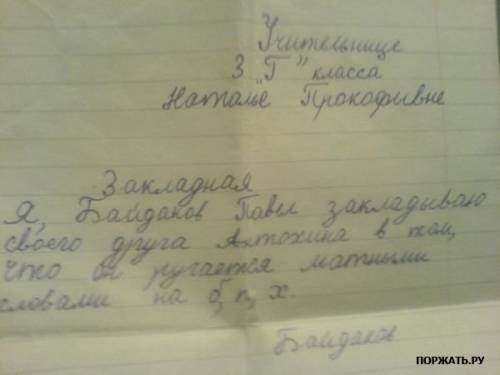 Учительнице
3 „Г” класса
Наталье Прокофивне
Закладная
Я, Байдаков Павел закладываю
своего друга Антохина в том,
что он ругается матными
словами на б, п, х.
Байдаков
ПОРЖАТЬ.РУ